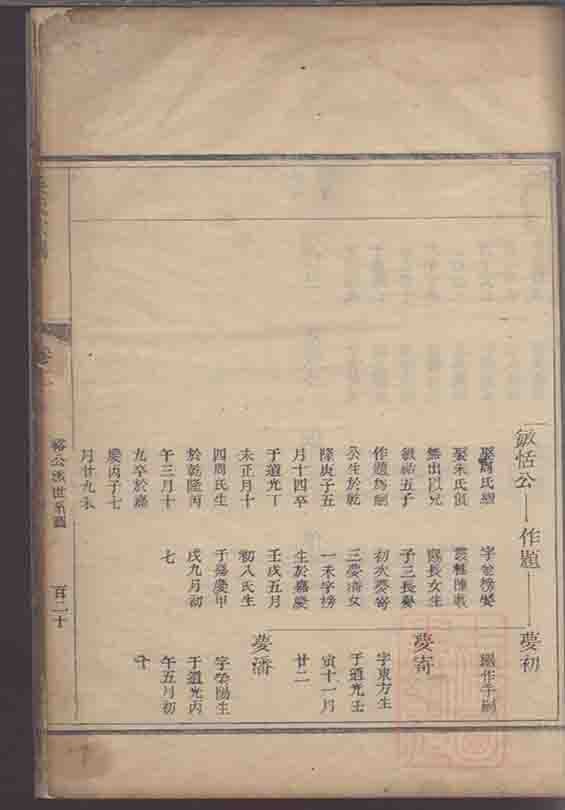 敏恬公—作題—夢初
娶周氏繼
娶朱氏俱
無出以兄
敏祜五子
作題為嗣
公生於乾
隆庚子五
月十四卒
于道光丁
未正月十
四周氏生
於乾隆丙
午三月十
九卒於嘉
慶丙子七
月廿九未
字金榜娶
叢氏
氏長女生
子三長夢
初次夢寄
三夢潘女
一未字榜
生於嘉慶
壬戌五月
初八氏生
于嘉慶甲
戌九月初
七
繼作
夢寄
字東方生
于道光壬
寅十一月
廿二
夢潘
字榮陽生
于道光丙
午五月初
十
裕公派世系圖
百二十